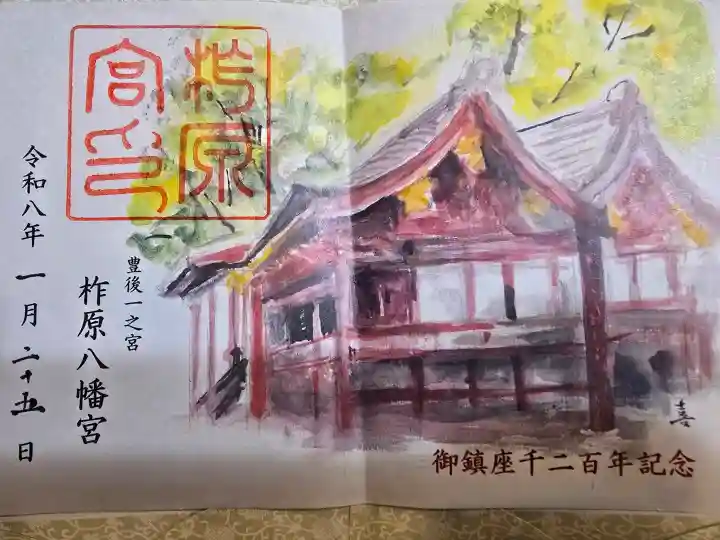 柞原
宮印
豊後一之宮
柞原八幡宮
令和八年 一月 二十五日
喜
御鎮座千二百年記念